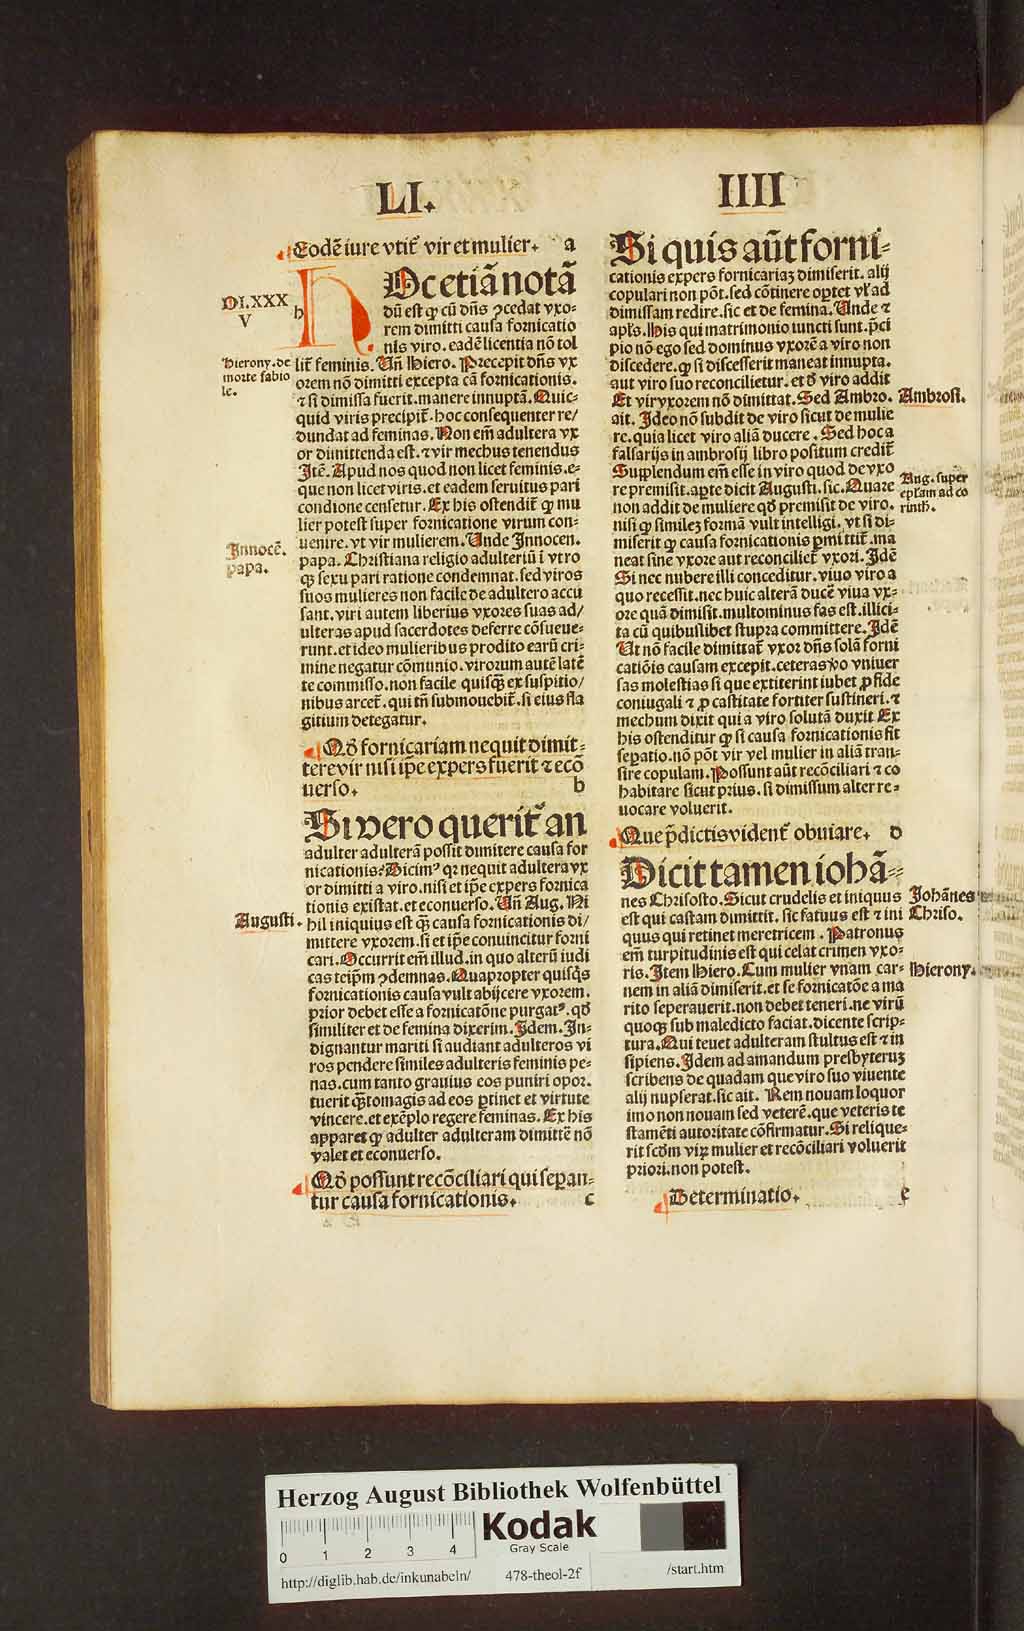 LI.
IIII
Eodē iure vtit᷑ vir et mulier. a
DI.XXX
V
h
Hierony. de
morte fabio
le.
Innocē.
papa.
Augusti.
HOc etiā notā
dū est ꝙ cū dn̄s ꝯcedat vxo
rem dimitti causa fornicatio
nis viro. eadē licentia nō tol
lit᷑ feminis. Vn̄ Hiero. Precepit dn̄s vx
orem nō dimitti excepta cā fornicationis.
⁊ si dimissa fuerit. manere innuptā. Quic-
quid viris precipit᷑. hoc consequenter re/
dundat ad feminas. Non em̄ adultera vx
or dimittenda est. ⁊ vir mechus tenendus
Itē. Apud nos quod non licet feminis. e-
que non licet viris. et eadem seruitus pari
condione censetur. Ex his ostendit᷑ ꝙ mu
lier potest super fornicatione virum con-
uenire. vt vir mulierem. Unde Innocen.
papa. Christiana religio adulteriū ī vtro
qꝫ sexu pari ratione condemnat. sed viros
suos mulieres non facile de adultero accu
sant. viri autem liberius vxores suas ad/
ulteras apud sacerdotes deferre cōsueue-
runt. et ideo mulieribus prodito earū cri-
mine negatur cōmunio. virorum autē latē
te commisso. non facile quisqꝫ ex suspitio/
nibus arcet᷑. qui tn̄ submouebit᷑. si eius fla
gitium detegatur.
Qd̄ fornicariam nequit dimit-
tere vir nisi ip̄e expers fuerit ⁊ ecō
uerso. b
Si vero querit᷑ an
adulter adulterā possit dimitere causa for
nicationis? Dicimꝰ qꝛ nequit adultera vx
or dimitti a viro. nisi et ip̄e expers fornica
tionis existat. et econuerso. Vn̄ Aug. Ni
hil iniquius est qꝫ causa fornicationis di/
mittere vxorem. si et ip̄e conuincitur forni
cari. Occurrit em̄ illud. in quo alterū iudi
cas teip̄m ꝯdemnas. Quapropter quisqs
fornicationis causa vult abijcere vxorem.
prior debet esse a fornicatōne purgatꝰ. qd̄
similiter et de femina dixerim. Idem. In-
dignantur mariti si audiant adulteros vi
ros pendere similes adulteris feminis pe-
nas. cum tanto grauius eos puniri opor.
tuerit qꝫtomagis ad eos ꝑtinet et virtute
vincere. et exēplo regere feminas. Ex his
apparet ꝙ adulter adulteram dimittē nō
valet et econuerso.
Qd̄ possunt recōciliari qui seꝑan-
tur causa fornicationis. c
Si quis aūt forni-
cationis expers fornicariaꝫ dimiserit. alij
copulari non pōt. sed cōtinere oꝑtet vl᷑ ad
dimissam redire. sic et de femina. Unde ⁊
apl᷑s. His qui matrimonio iuncti sunt. p̄ci
pio nō ego sed dominus vxorē a viro non
discedere. ꝙ si discesserit maneat innupta.
aut viro suo reconcilietur. et d̄ viro addit
Et vir vxorem nō dimittat. Sed Ambro.
ait. Ideo nō subdit de viro sicut de mulie
re. quia licet viro aliā ducere. Sed hoc a
falsarijs in ambrosij libro positum credit᷑
Supplendum em̄ esse in viro quod de vxo
re premisit. aꝑte dicit Augusti. sic. Quare
non addit de muliere qd̄ premisit de viro.
nisi ꝙ similez formā vult intelligi. vt si di-
miserit ꝙ causa fornicationis ꝑmittit᷑. ma
neat sine vxore aut reconciliet᷑ vxori. Idē
Si nec nubere illi conceditur. viuo viro a
quo recessit. nec huic alterā ducē viua vx-
ore quā dimisit. multominus fas est. illici-
ta cū quibuslibet stupra committere. Idē
Ut nō facile dimittat᷑ vxor dn̄s solā forni
catiōis causam excepit. ceteras v̓o vniuer
sas molestias si que extiterint iubet ꝓ fide
coniugali ⁊ ꝓ castitate fortiter sustineri. ⁊
mechum dixit qui a viro solutā duxit Ex
his ostenditur ꝙ si causa fornicationis fit
seꝑatio. nō pōt vir vel mulier in aliā tran-
sire copulam. Possunt aūt recōciliari ⁊ co
habitare sicut prius. si dimissum alter re-
uocare voluerit.
Que p̄dictis vident᷑ obuiare. d
Dicit tamen iohā-
nes Chrisosto. Sicut crudelis et iniquus
est qui castam dimittit. sic fatuus est ⁊ ini
quus qui retinet meretricem. Patronus
em̄ turpitudinis est qui celat crimen vxo-
ris. Item Hiero. Cum mulier vnam car-
nem in aliā dimiserit. et se fornicatōe a ma
rito seperauerit. non debet teneri. ne virū
quoqꝫ sub maledicto faciat. dicente scrip-
tura. Qui tenet adulteram stultus est ⁊ in
sipiens. Idem ad amandum presbyteruꝫ
scribens de quadam que viro suo viuente
alij nupserat. sic ait. Rem nouam loquor
imo non nouam sed veterē. que veteris te
stamēti autoritate cōfirmatur. Si relique-
rit scd̄m virꝝ mulier et recōciliari voluerit
priori. non potest.
Determinatio. e
Ambrosi.
Aug. super
epl᷑am ad co
rinth.
Johānes
Chriso.
Hierony.
Herzog August Bibliothek Wolfenbüttel
Kodak
Gray Scale
0 1 2 3 4
http://diglib.hab.de/inkunabeln/ 478-theol-2f /start.htm